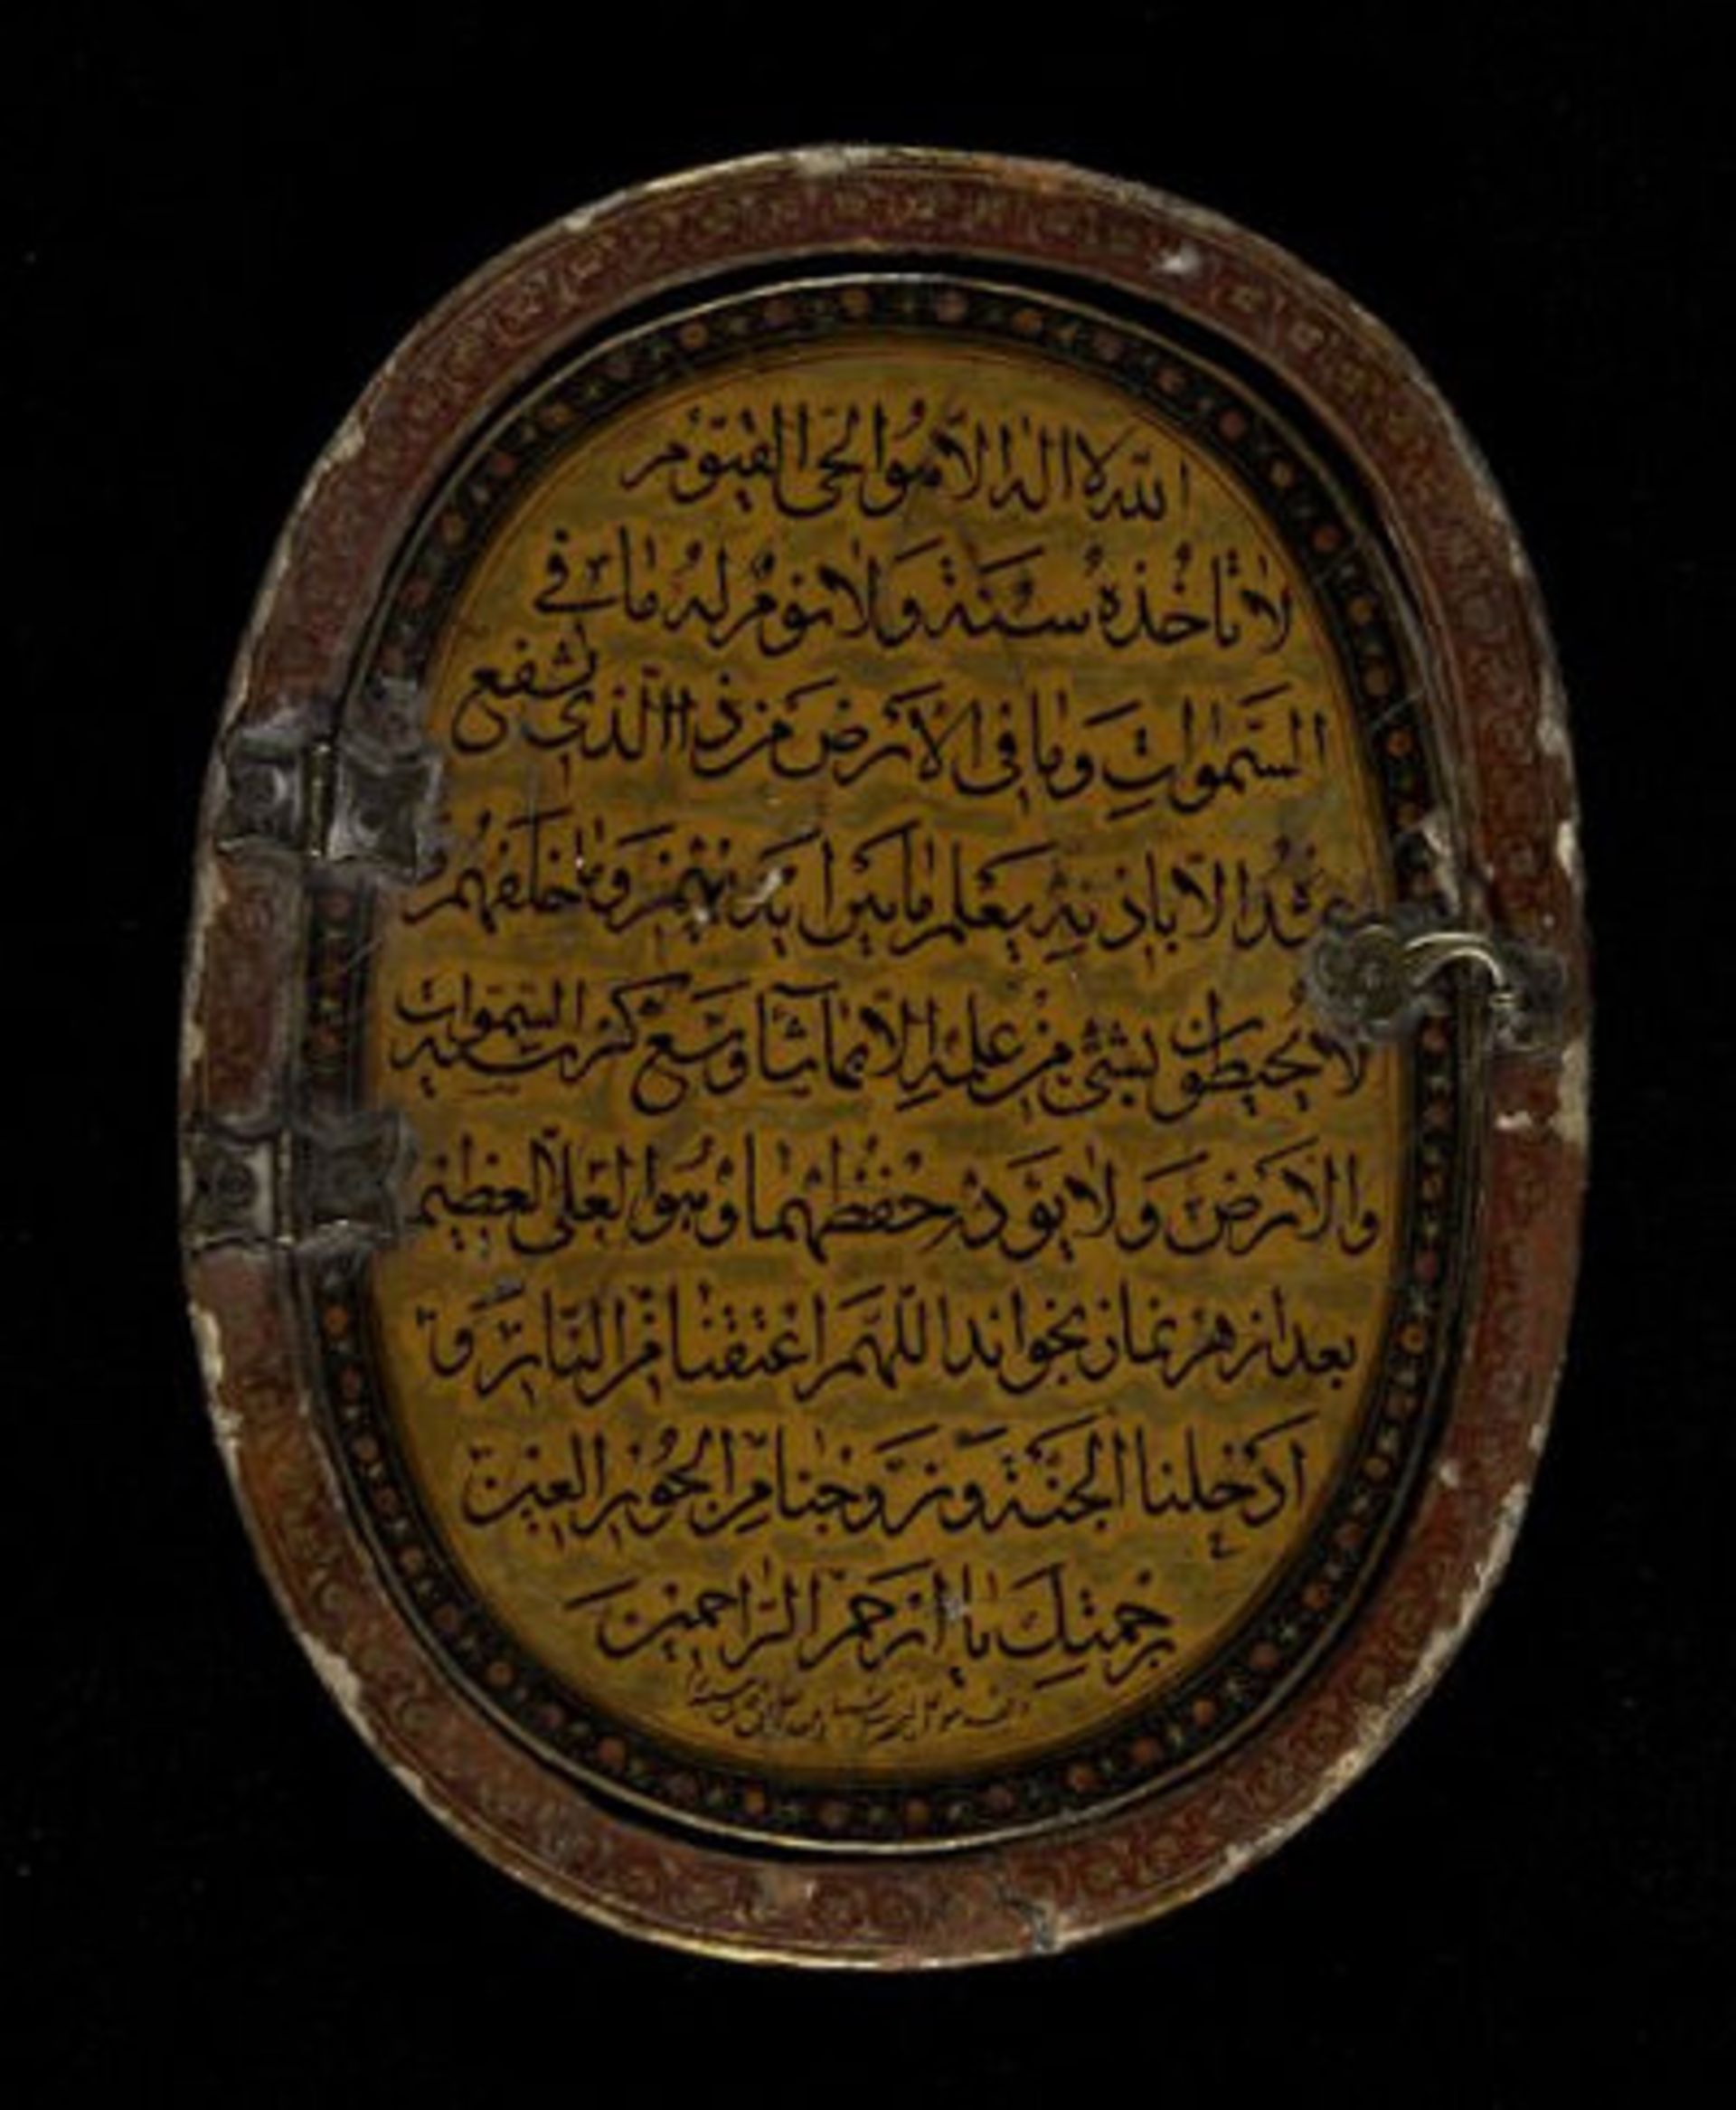 الله لا اله الا هو الحی القیوم
لا تاخذه سنة ولا نوم له ما فی
السموات وما فی الارض من ذا الذی یشفع
عنده الا باذنه یعلم ما بین ایدیهم وما خلفهم و
لا یحیطون بشیء من علمه الا بما شاء وسع کرسیه السموات
والارض ولا یؤده حفظهما وهو العلی العظیم
بعد از هر نماز بخواند اللهم اعتقنا من النار و
ادخلنا الجنة وزوجنا من الحور العین
برحمتك یا ارحم الراحمین